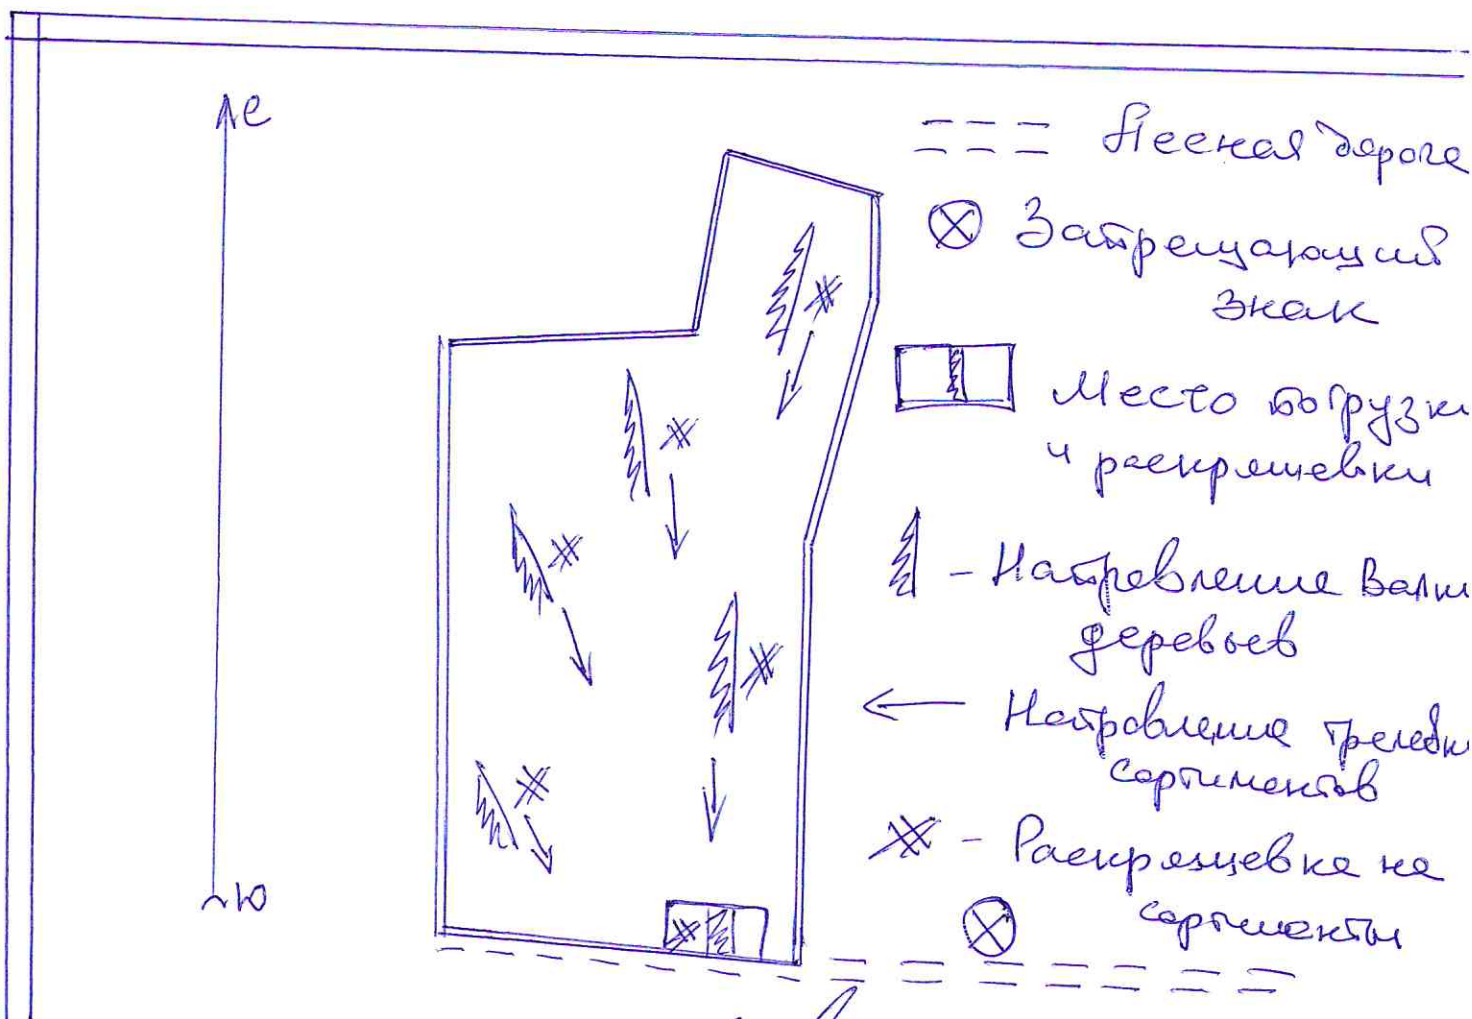 С
Лесная дорога
Запрещающий
знак
Место погрузки
и раскряшевки
- Направление Валки
деревьев
Направление трелевки
сортиментов
- Раскряцевка на
сортименты
Ю